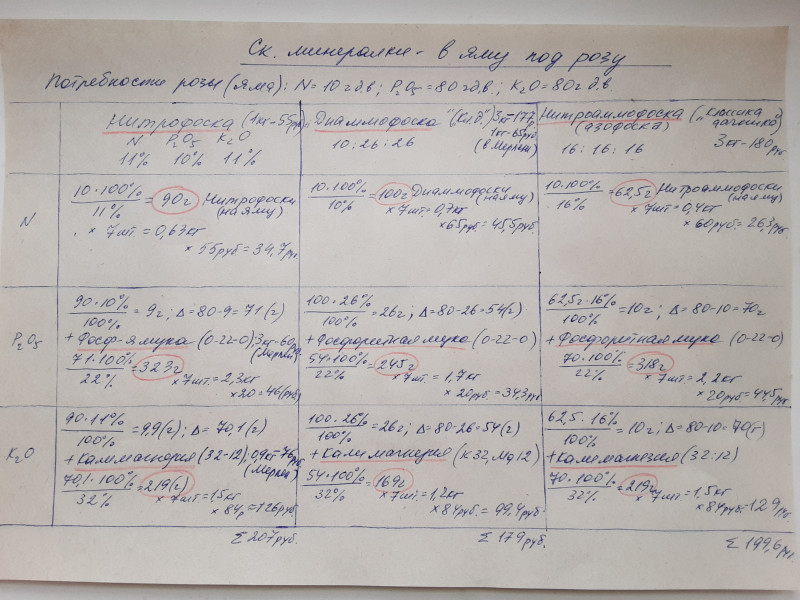 Ск. минералки - в яму под розу
Потребности розы (яма): N = 10 г д.в; P₂O₅ = 80 г д.в.; K₂O = 80 г д.в
Нитрофоска (1кг - 55руб)
N P₂O₅ K₂O
11% 10% 11%
"Диаммофоска" ("Кл.д") 3кг-177р
1кг-65руб
(в Мерлен)
10 : 26 : 26
Нитроаммофоска ("Клиника
(азофоска) дачешко")
16 : 16 : 16 3кг-180руб
N
10·100%/11% = 90г Нитрофоски
(на яму)
× 7шт. = 0,63кг
× 55руб = 34,7руб
10·100%/10% = 100г Диаммофоски
(на яму)
× 7шт = 0,7кг
× 65руб = 45,5руб.
10·100%/16% = 62,5г Нитроаммофоски
(на яму)
× 7шт = 0,4кг
× 60руб = 26,3руб.
P₂O₅
90·10%/100% = 9г; Δ = 80-9 = 71(г)
+ Фосф-я мука (0-22-0); 3кг-60р
(Мерлен)
71·100%/22% = 323г
× 7шт. = 2,3кг
× 20 = 46(руб)
100·26%/100% = 26г; Δ = 80-26 = 54(г)
+ Фосфоритная мука (0-22-0)
54·100%/22% = 245г
× 7шт. = 1,7кг
× 20руб = 34,3руб
62,5г·16%/100% = 10г; Δ = 80-10 = 70г
+ Фосфоритная мука (0-22-0)
70·100%/22% = 318г
× 7шт = 2,2кг
× 20руб = 44,5руб.
K₂O
90·11%/100% = 9,9(г); Δ = 70,1(г)
+ Калимагнезия (32-12); 0,9кг 76руб
(Мерлен)
70,1·100%/32% = 219(г)
× 7шт = 1,5кг
× 84р = 126руб
100·26%/100% = 26г; Δ = 80-26 = 54(г)
+ Калимагнезия (К32, Mg12)
54·100%/32% = 169г
× 7шт. = 1,2кг
× 84руб. = 99,4руб.
62,5·16%/100% = 10г; Δ = 80-10 = 70(г)
+ Калимагнезия (32-12)
70·100%/32% = 219г
× 7шт. = 1,5кг
× 84руб = 129руб
Σ 207руб.
Σ 179руб.
Σ 199,6руб.